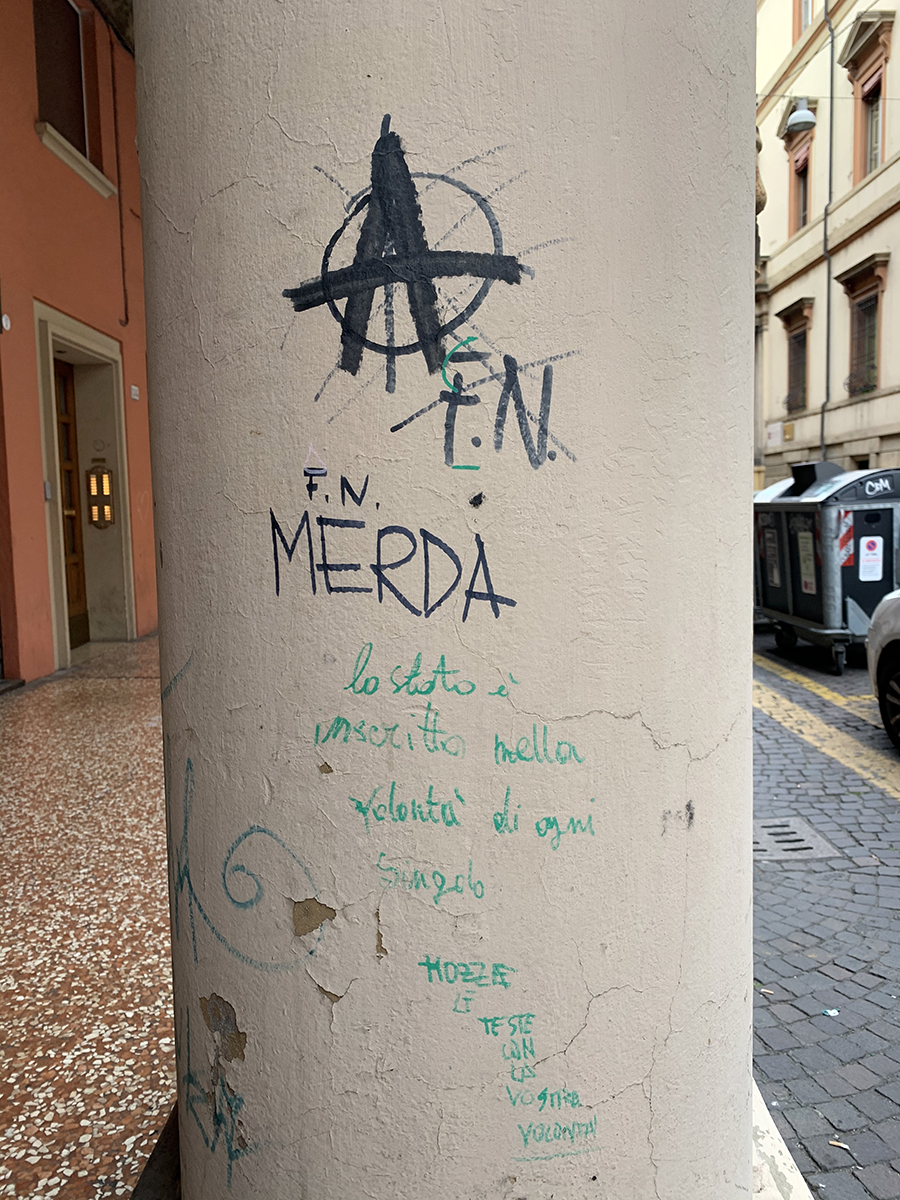 A
F.N.
F. N.
MERDA
lo stato è
inscritto nella
volontà di ogni
singolo
MOZZE
LE
TESTE
CON
LA
VOSTRA
VOLONTÀ